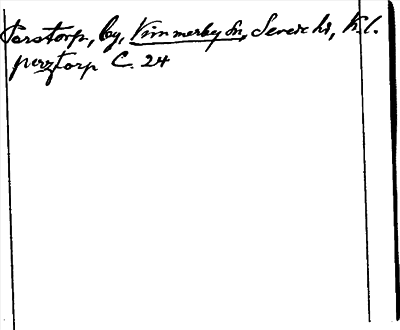 Torstorp, by, Vimmerby sn, Sevede hd, K.l.
porstorp C. 24